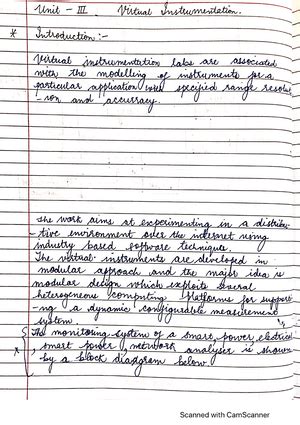 Unit - III. Virtual Instrumentation.
* Introduction :-
Virtual instrumentation labs are associated
with the modelling of instruments for a
particular application with specified range resolu
- ion and accuracy.
The work aims at experimenting in a distribu-
- tive environment over the internet using
industry based software technique.
The virtual instruments are developed in
modular approach and the major idea is
modular design which exploits several
heterogneous computing platforms for support-
- ing a dynamic configurable measurement
system.
* The monitoring system of a smart power, electrical
, smart power, network analyser is shown
by a block diadgram below.
Scanned with CamScanner